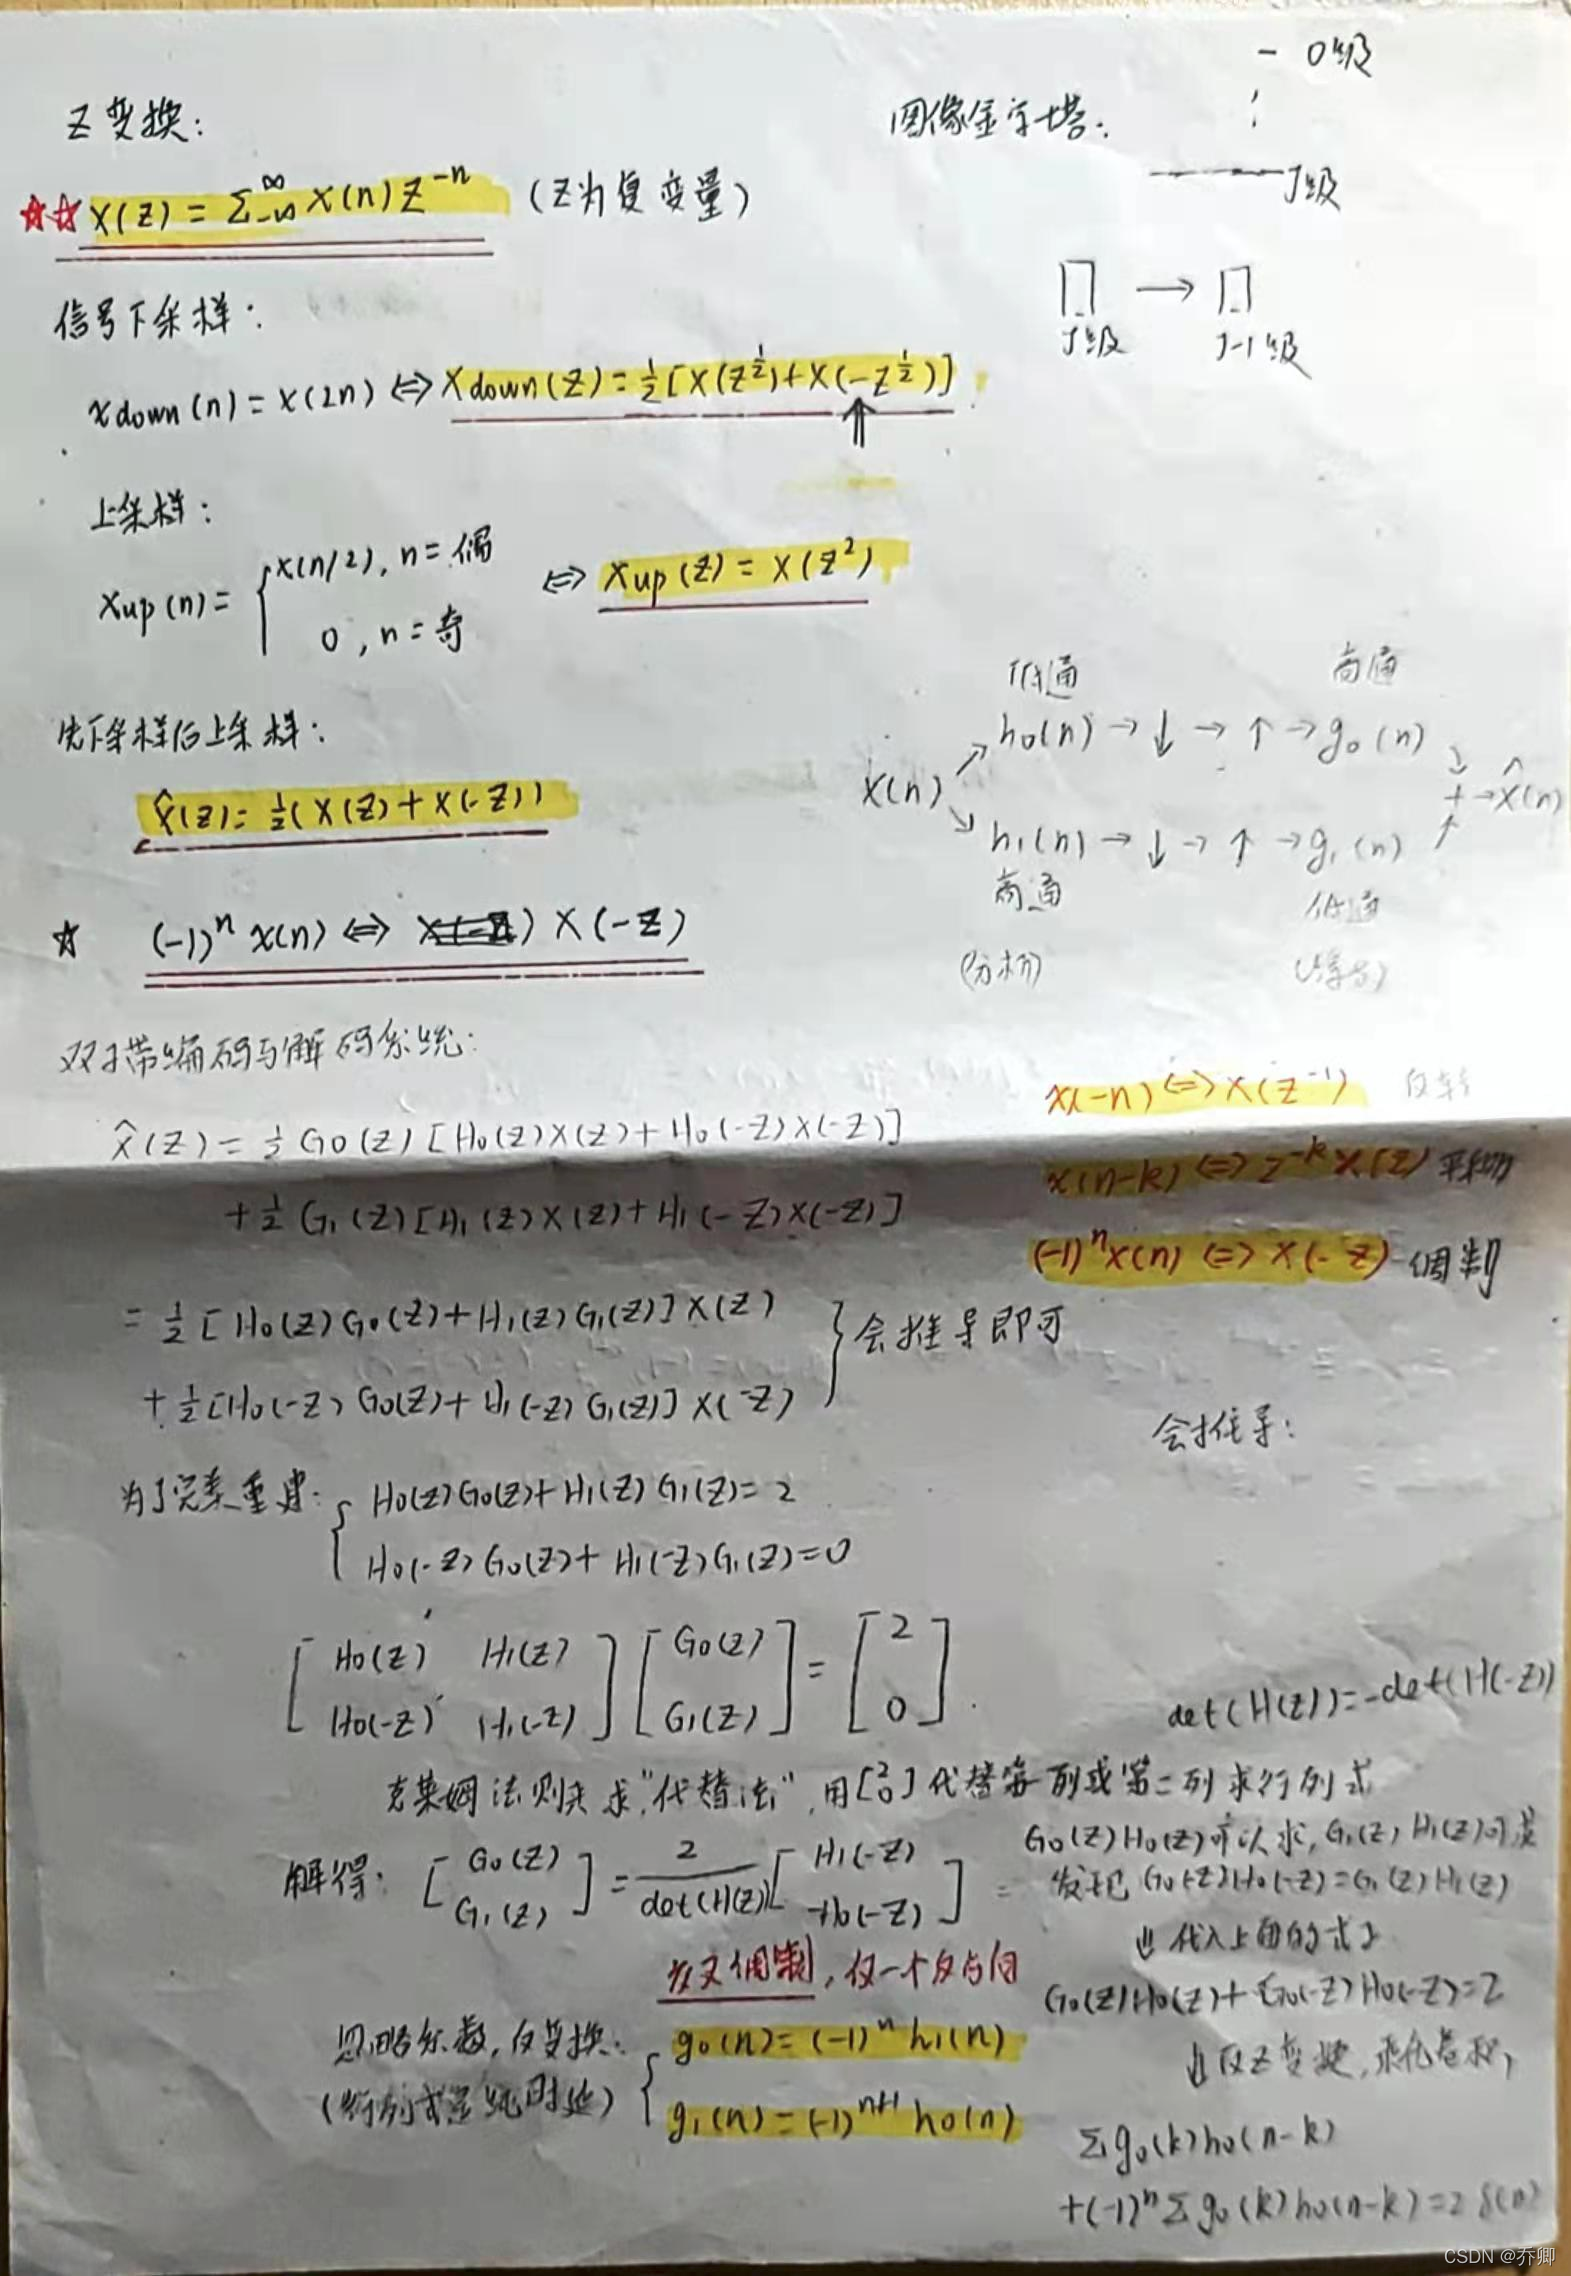 Z变换：
X(Z) = Σ_{-∞}^{∞} x(n) Z^{-n} （Z为复变量）
信号下采样：
xdown(n) = x(2n) ⇔ Xdown(Z) = 1/2 [X(Z^{1/2}) + X(-Z^{1/2})]
⇑
上采样：
xup(n) = { x(n/2), n = 偶
0, n = 奇
⇔ Xup(Z) = X(Z^2)
先下采样后上采样：
X̂(Z) = 1/2 (X(Z) + X(-Z))
☆ (-1)^n x(n) ⇔ X(-Z)
图像金字塔：
- 0级
J级
J级 → J-1级
低通 高通
x(n) ↗ h0(n) → ↓ → ↑ → g0(n) ↘
+ → x̂(n)
↘ h1(n) → ↓ → ↑ → g1(n) ↗
高通 低通
(分析)
双子带编码与解码系统：
X̂(Z) = 1/2 G0(Z) [H0(Z)X(Z) + H0(-Z)X(-Z)]
+ 1/2 G1(Z) [H1(Z)X(Z) + H1(-Z)X(-Z)]
= 1/2 [H0(Z)G0(Z) + H1(Z)G1(Z)] X(Z)
+ 1/2 [H0(-Z)G0(Z) + H1(-Z)G1(Z)] X(-Z)
} 会推导即可
x(-n) ⇔ X(Z^{-1}) 反转
x(n-k) ⇔ Z^{-k} X(Z) 平移
(-1)^n x(n) ⇔ X(-Z) 调制
会推导：
为了完美重建： { H0(Z)G0(Z) + H1(Z)G1(Z) = 2
H0(-Z)G0(Z) + H1(-Z)G1(Z) = 0
[ H0(Z) H1(Z) ] [ G0(Z) ] = [ 2 ]
[ H0(-Z) H1(-Z) ] [ G1(Z) ] [ 0 ]
det(H(Z)) = -det(H(-Z))
克莱姆法则 求"代替法"，用[2 0]代替第一列或第二列求行列式
解得： [ G0(Z) ] = 2/det(H(Z)) [ H1(-Z) ]
[ G1(Z) ] [ -H0(-Z) ]
交叉调制，仅一个反向
忽略系数，反变换： { g0(n) = (-1)^n h1(n)
(行列式是纯时延) g1(n) = (-1)^{n+1} h0(n)
G0(Z)H0(Z)可以求，G1(Z)H1(Z)可求
发现 G0(-Z)H0(-Z) = G1(Z)H1(Z)
⇓ 代入上面的式子
G0(Z)H0(Z) + G0(-Z)H0(-Z) = 2
⇓ 反Z变换，乘化卷积
Σ g0(k)h0(n-k)
+ (-1)^n Σ g0(k)h0(n-k) = 2δ(n)
CSDN @乔卿